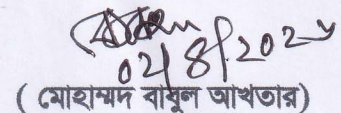 02/8/2024
( মোহাম্মদ বাবুল আখতার)